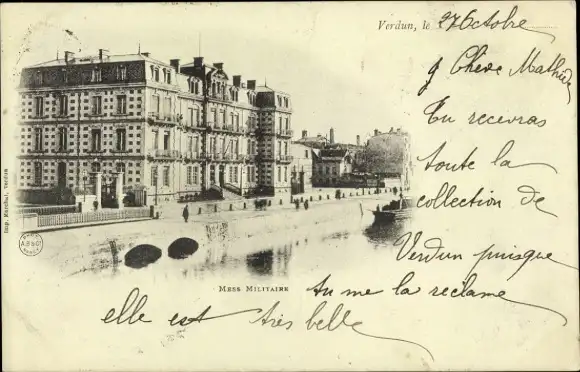 Verdun, le 27 Octobre
Chère Mathilde
Tu recevras
toute la
collection de
Verdun puisque
tu me la reclame
elle est très belle
MESS MILITAIRE
Imp. Maréchal, Verdun